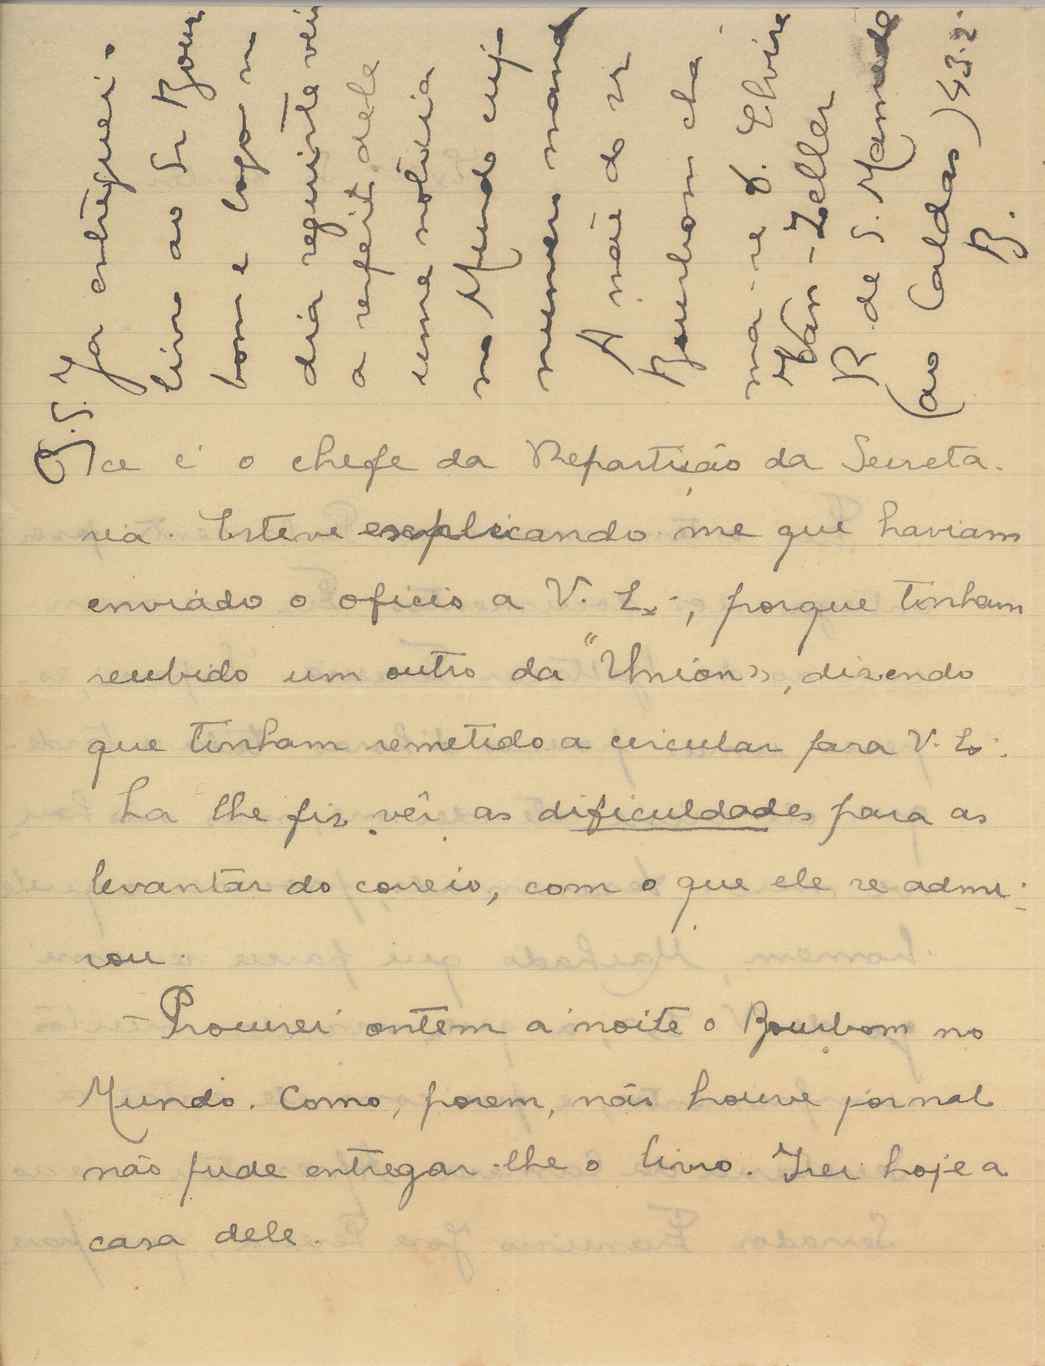 ce é o chefe da Repartição da Secreta-
ria. Esteve explicando me que haviam
enviado o oficio a V. Ex., porque tinham
recebido um outro da "Union», dizendo
que tinham remetido a circular para V. Ex.
Ha lhe fiz vêr as dificuldades para as
levantar do correio, com o que ele se admi-
rou.
- Procurei ontem a noite o Bourbom no
Mundo. Como, porem, não houve jornal
não pude entregar-lhe o livro. Irei hoje a
casa dele.
P.S. Ja entreguei o
livro ao Sr Bour
bom e logo no
dia seguinte veiu
a respeito dele
uma noticia
no Mundo cujo
numero mando
A mãe do sr
Bourbom cha
ma-se D. Elvira
Van-Zeller
R. de S. Mamede
(ao Caldas) 43.2.
B.